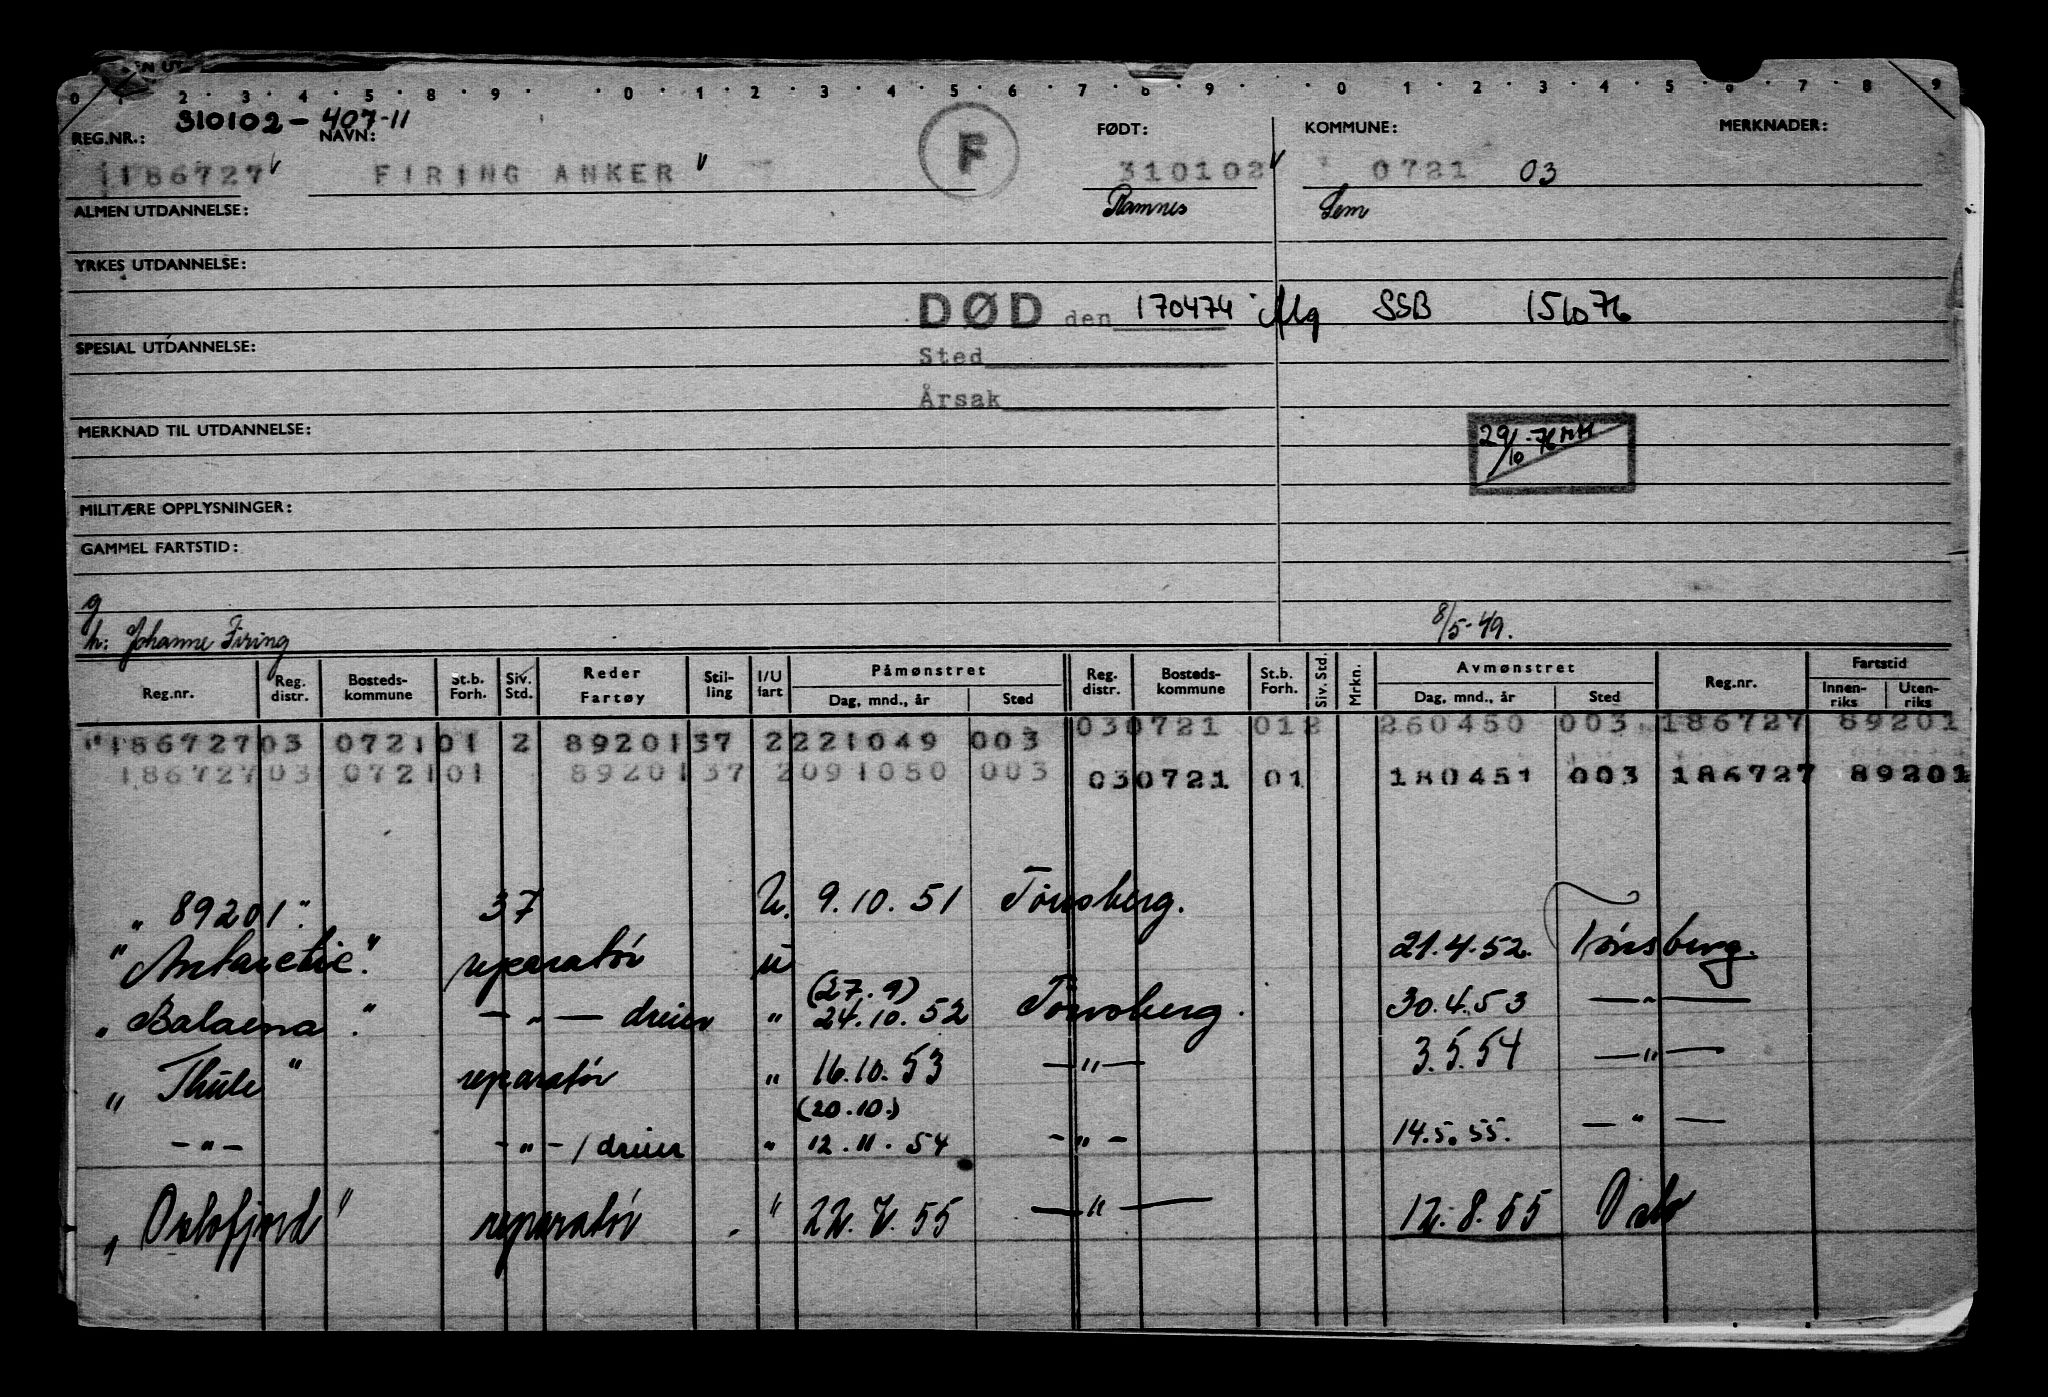 0 1 2 3 4 5 8 9 0 1 2 3 4 5 6 7 8 9 0 1 2 3 4 5 6 7 8 9
310102-407-11
REG.NR.: NAVN: FØDT: KOMMUNE: MERKNADER:
186727 FIRING ANKER F 310102 0721 03
Ramnes Sem
ALMEN UTDANNELSE:
YRKES UTDANNELSE:
DØD den 170474 Mlg SSB 151076
SPESIAL UTDANNELSE:
Sted
Årsak
MERKNAD TIL UTDANNELSE:
29/10-76
MILITÆRE OPPLYSNINGER:
GAMMEL FARTSTID:
g
h: Johanne Firing 8/5-49.
Reg.nr. Reg. distr. Bosteds- kommune St.b. Forh. Siv. Std. Reder Fartøy Stil- ling I/U fart Påmønstret Dag, mnd., år Sted Reg. distr. Bosteds- kommune St.b. Forh. Siv. Std. Mrkn. Avmønstret Dag, mnd., år Sted Reg.nr. Fartstid Innen- riks Uten- riks
186727 03 0721 01 2 89201 37 2 221049 003 03 0721 01 2 260450 003 186727 89201
186727 03 0721 01 89201 37 2 091050 003 03 0721 01 180451 003 186727 89201
"89201" 37 U. 9.10.51 Tønsberg.
"Antarctic." reparatør u 21.4.52. Tønsberg.
(27.9)
"Balaena." -"- dreier " 24.10.52 Tønsberg. 30.4.53 -"-
"Thule" reparatør " 16.10.53 -"- 3.5.54 -"-
(20.10.)
-"- -"-/dreier " 12.11.54 -"- 14.5.55. -"-
"Oslofjord" reparatør " 22.7.55 -"- 12.8.55 Oslo